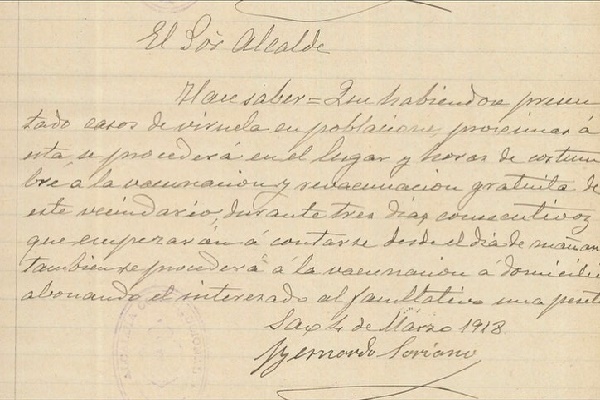 El Sór Alcalde
Hace saber = Que habiendose presen
tado casos de viruela en poblaciones proximas á
esta se procederá en el lugar y horas de costum
bre a la vacunacion y revacunacion gratuita de
este vecindario, durante tres dias consecutivos
que empezarán á contarse desde el dia de mañan
tambien se procederá á la vacunacion á domicilio
abonando el interesado al facultativo una peset
Sax 4 de Marzo 1913
Bernardo Soriano